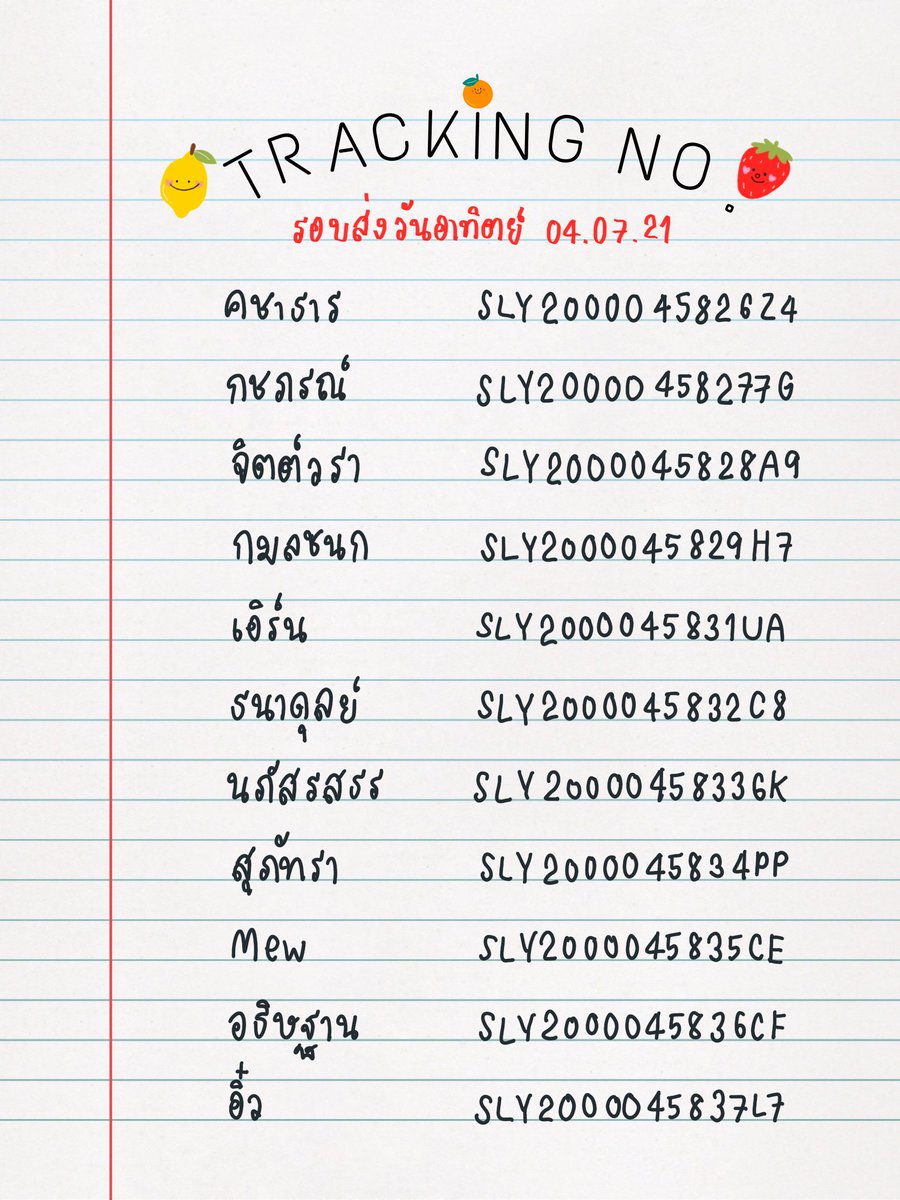 TRACKING NO.
รอบส่งวันอาทิตย์ 04.07.21
คชาธาร SLY2000045826Z4
กชภรณ์ SLY20000458277G
จิตต์วรา SLY2000045828A9
กมลชนก SLY2000045829H7
เอิร์น SLY2000045831UA
ธนาดุลย์ SLY2000045832C8
นภัสรสรร SLY20000458336K
สุภัทรา SLY2000045834PP
Mew SLY2000045835CE
อธิษฐาน SLY2000045836CF
อิ๋ว SLY2000045837L7